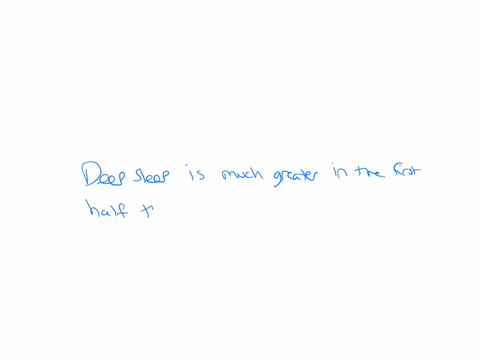 Deep sleep is much greater in the first
half t